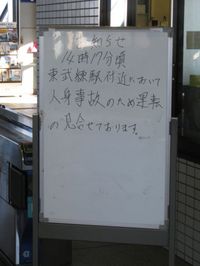 お知らせ
14時17分頃
東武練馬駅付近において
人身事故のため運転
の見合せております。